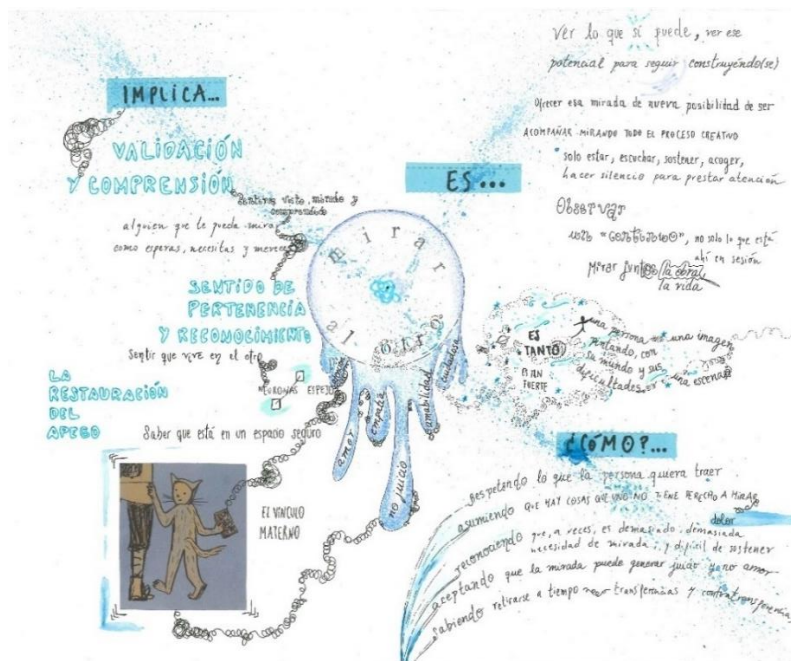 IMPLICA...
VALIDACIÓN
Y COMPRENSIÓN
Sentirse visto, mirado y
comprendido
alguien que te pueda mirar
como esperas, necesitas y mereces
SENTIDO DE
PERTENENCIA
Y RECONOCIMIENTO
Sentir que vive en el otro
NEURONAS ESPEJO
LA
RESTAURACIÓN
DEL
APEGO
Saber que está en un espacio seguro
EL VINCULO
MATERNO
mirar
al otro
amor
empatía
no juicio
amabilidad
cuidadosa
ES...
ver lo que sí puede, ver ese
potencial para seguir construyéndo(se)
Ofrecer esa mirada de nueva posibilidad de ser
ACOMPAÑAR MIRANDO TODO EL PROCESO CREATIVO
solo estar, escuchar, sostener, acoger,
hacer silencio para prestar atención
Observar
un "continuo", no solo lo que está
ahí en sesión
Mirar juntos la obra,
la vida
ES
TANTO
ES TAN
FUERTE
una persona es una imagen
pintando, con
su mundo y sus
dificultades, es una escena
¿CÓMO?...
respetando lo que la persona quiera traer
asumiendo QUE HAY COSAS QUE UNO NO TIENE DERECHO A MIRAR
dolor
reconociendo que, a veces, es demasiado, demasiada
necesidad de mirada, y difícil de sostener
aceptando que la mirada puede generar juicio y no amor
sabiendo retirarse a tiempo transferencias y contratransferencias